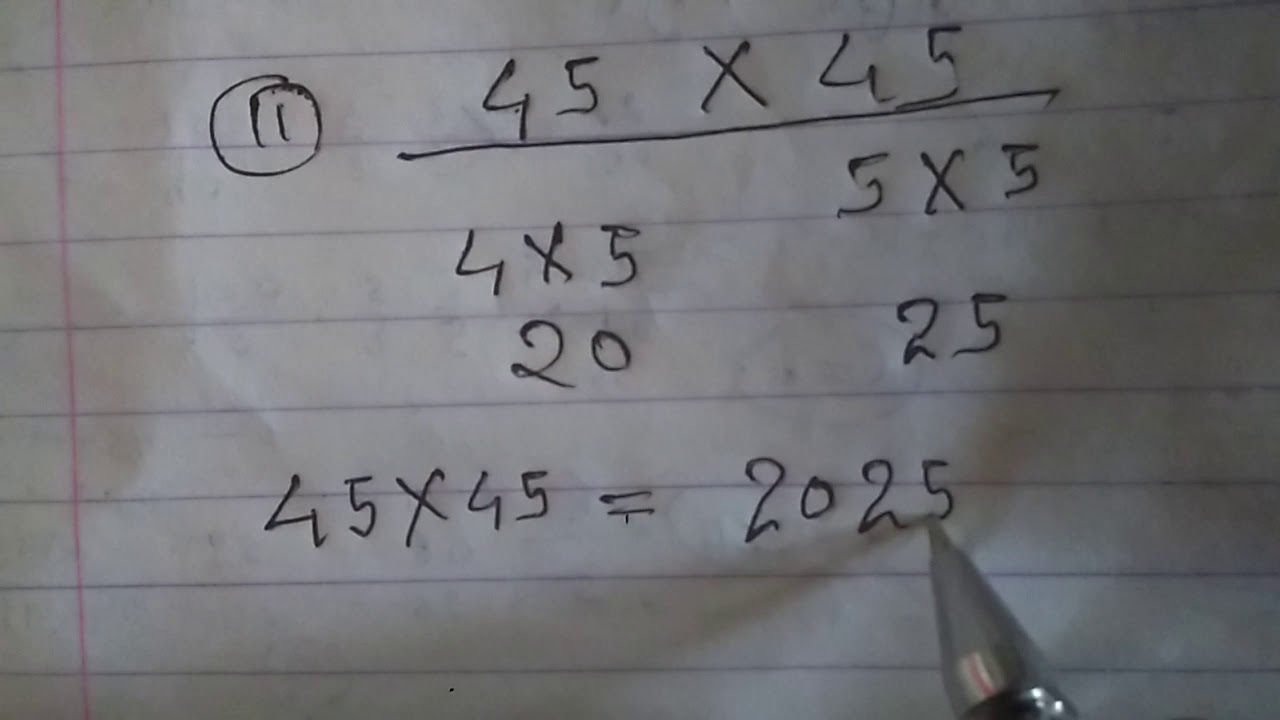 11 45 X 45
5 X 5
4 X 5
20 25
45 X 45 = 2025